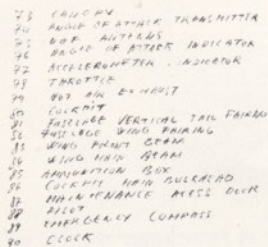 73 CANOPY
74 ANGLE OF ATTACK TRANSMITTER
75 ANTENNA
76 ANGLE OF ATTACK INDICATOR
77 ACCELEROMETER INDICATOR
78 THROTTLE
79 HOT AIR EXHAUST
80 COCKPIT
FUSELAGE VERTICAL TAIL FAIRING
FUSELAGE WING FAIRING
83 WING FRONT BEAM
84 WING MAIN BEAM
85 AMMUNITION BOX
86 COCKPIT MAIN BULKHEAD
87 MAINTENANCE ACCESS DOOR
88 PILOT
89 EMERGENCY COMPASS
90 CLOCK